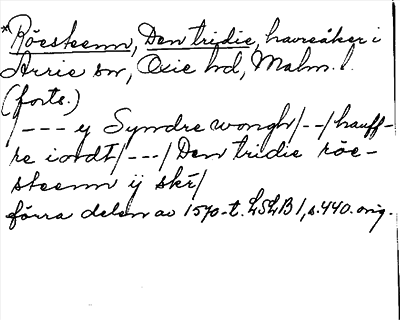 *Röesteenn, Den tridie, havreåker i
Arrie sn, Oxie hd, Malm. l.
(forts.)
/--- y Syndre wongh/--/hauff-
re iordt/---/Den tridie röe-
steenn ij skr/
förra delen av 1570-t. LSLB 1, s. 440. orig.